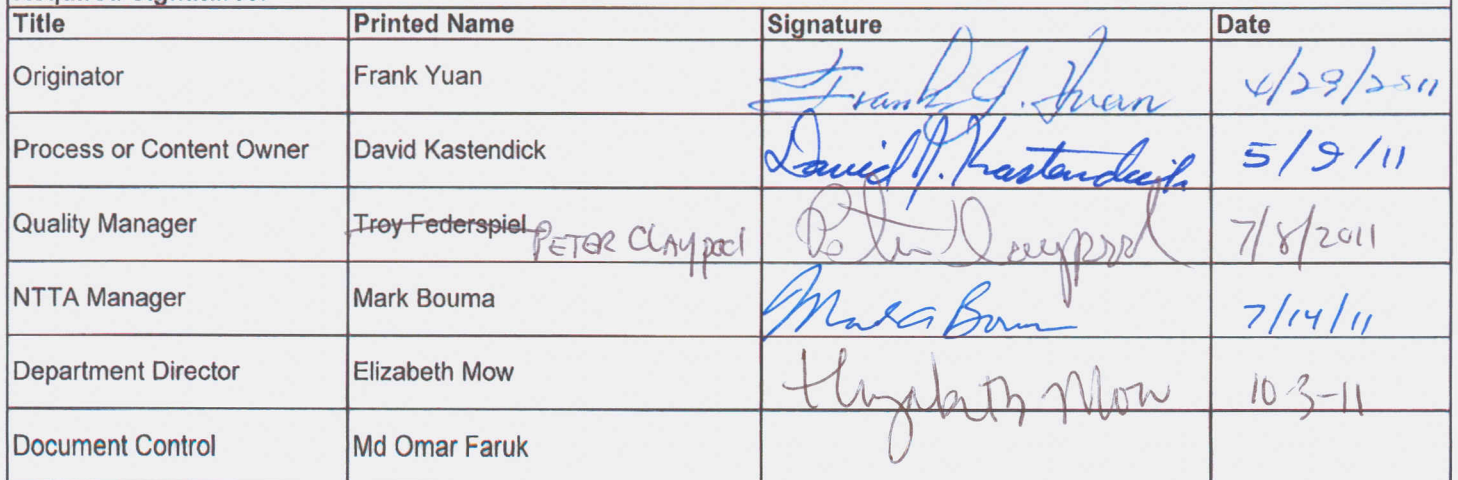 Title Printed Name Signature Date
Originator Frank Yuan Frank J. Yuan 4/29/2011
Process or Content Owner David Kastendick David N. Kastendick 5/9/11
Quality Manager Troy Federspiel PETER Claypool Peter Claypool 7/8/2011
NTTA Manager Mark Bouma Mark Bouma 7/14/11
Department Director Elizabeth Mow Elizabeth Mow 10-3-11
Document Control Md Omar Faruk